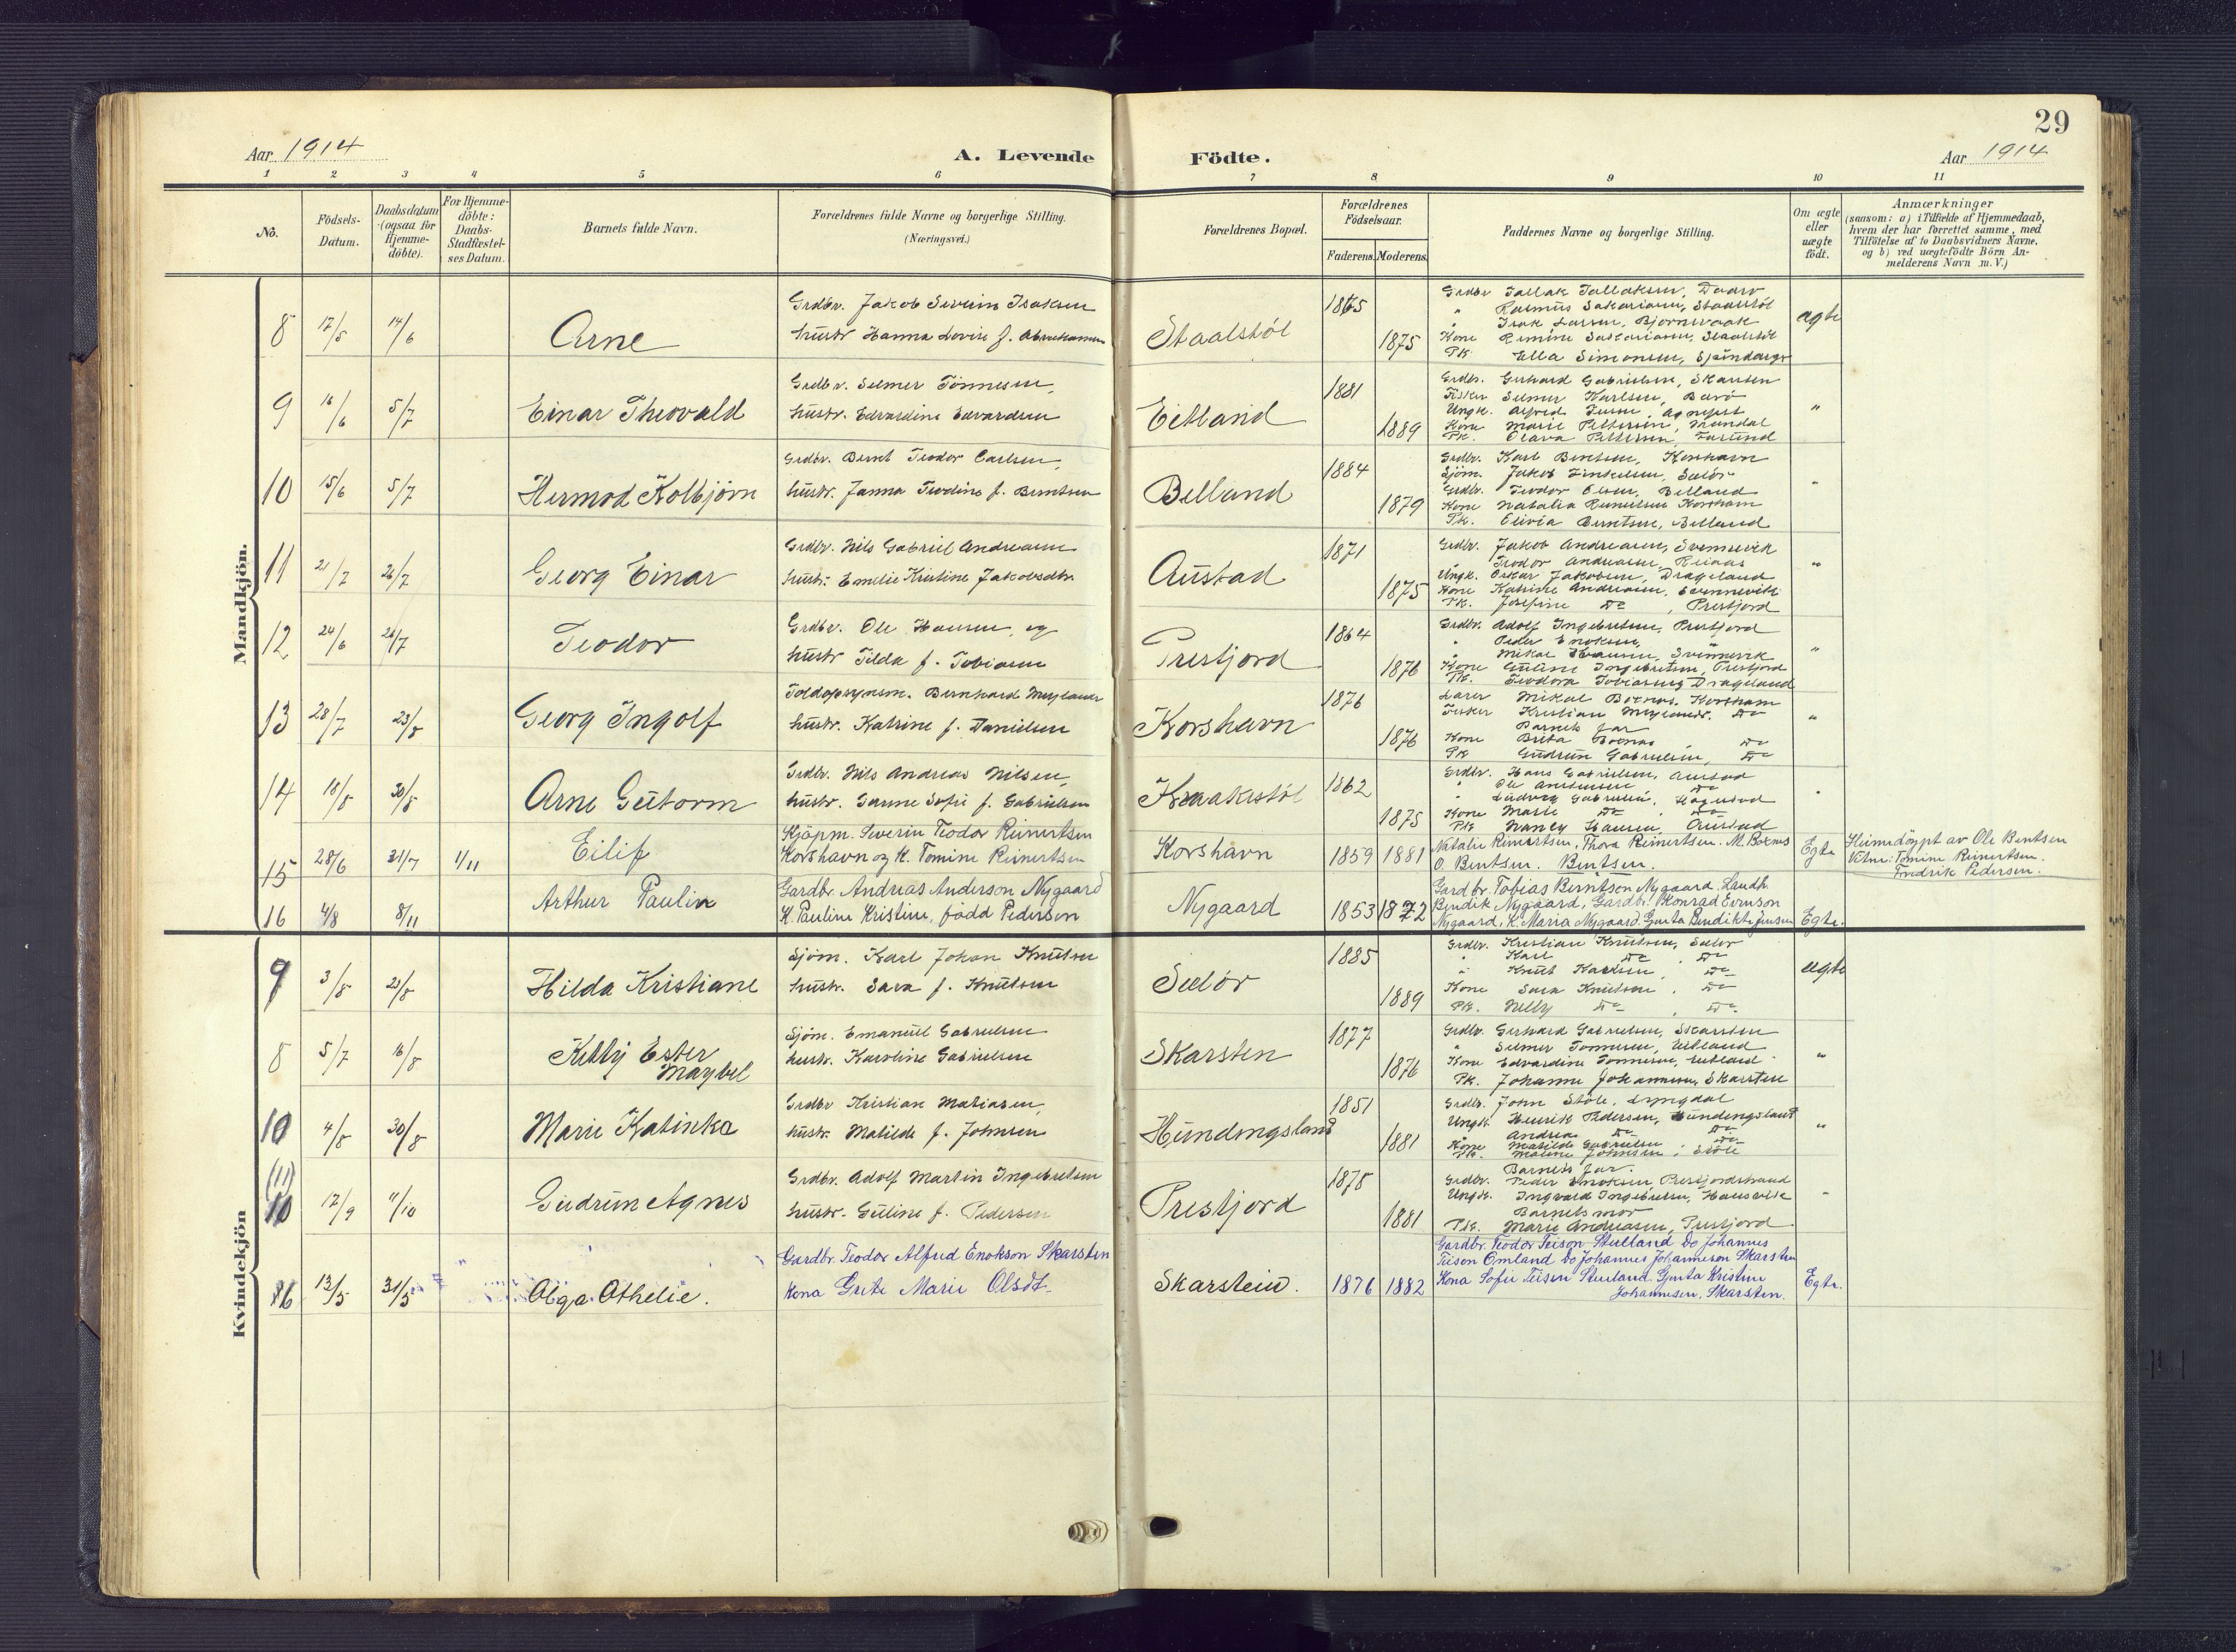 29
Aar 1914
A. Levende Födte.
Aar 1914
1 2 3 4 5 6 7 8 9 10 11
No.
Födsels-Datum.
Daabsdatum (ogsaa for Hjemme-döbte).
For Hjemme-döbte: Daabs-Stadfæstel-ses Datum.
Barnets fulde Navn.
Forældrenes fulde Navne og borgerlige Stilling.
(Næringsvei.)
Forældrenes Bopæl.
Forældrenes Födselsaar.
Faderens. Moderens.
Faddernes Navne og borgerlige Stilling.
Om ægte eller uægte födt.
Anmærkninger
(saasom: a) i Tilfælde af Hjemmedaab, hvem der har forrettet samme, med Tilföielse af to Daabsvidners Navne. og b) ved uægtefödte Börn Anmelderens Navn m. V.)
Mandkjön.
8 17/5 14/6 Arne
Grdbr. Jakob Severin Isaksen
hustr Hanna Lovise f. Abrahamsen
Staalstöl 1865 1875
Grdbr Tallak Tallaksen,
" Rasmus Sakariasen, Staalstöl
" Isak Larsen,
Kone Sakariasen, Staalstöl
Pk. Ella Simonsen,
ægte
9 16/6 5/7 Einar Theovald
Grdbr. Selmer Tönnesen,
hustr. Edvardine Edvardsen
Eitland 1881 1889
Grdbr. Gerhard Gabrielsen, Skarsten
Fisker Selmer Karlsen,
Ungk. Alfred
Kone Marie Pettersen, Mandal
Pk. Olava Pettersen, Farsund
"
10 15/6 5/7 Hermod Kolbjörn
Grdbr. Bernt Teodor Carlsen,
hustr. Janna Teodine f. Berntsen
Belland 1884 1879
Grdbr. Karl Bentsen, Korshavn
Sjöm. Jakob Selör
Grdbr. Teodor Olsen, Belland
Kone Natalia Reinertsen Korshavn
Pk. Olivia Berntsen, Belland
"
11 21/7 26/7 Georg Einar
Grdbr. Nils Gabriel Andreasen
hustr. Emelie Kristine Jakobsdtr.
Austad 1871 1875
Grdbr. Jakob Andreasen, Svennevik
" Teodor Andreasen,
Ungk. Oskar Jakobsen, Drageland
Kone Katrine Andreasen, Svennevik
Pk. Josefine Do, Prestjord
"
12 24/6 26/7 Teodor
Grdbr. Ole Hansen, og
hustr Tilda f. Tobiasen
Prestjord 1864 1876
Grdbr. Adolf Ingebretsen, Prestjord
" Peder Enoksen, "
" Mikal Hansen, Svennevik
Kone Guline Ingebretsen, Prestjord
Pk. Teodora Tobiasen, Drageland
"
13 28/7 23/8 Georg Ingolf
Toldopsynsm. Bernhard Meylandr
hustr. Katrine f. Danielsen
Korshavn 1876 1876
Lærer Mikal Boenes, Korshavn
Fisker Kristian Meylandr. Do
Barnets far
Kone Brita Boenes, Do
Pk Gudrun Gabrielsen, Do
"
14 18/8 30/8 Arne Gutorm
Grdbr. Nils Andreas Nilsen,
hustr. Sanne Sofie f. Gabrielsen
Kraakestöl 1862 1875
Grdbr. Hans Gabrielsen, Austad
" Ole Do
" Ludvig Gabrielsen,
Kone Marie Do, Do
Pk Nancy Hansen, Austad
"
15 28/6 31/7 1/11 Eilif
Kjöpm. Severin Teodor Reinertsen
Korshavn og K. Tomine Reinertsen
Korshavn 1859 1881
Natalie Reinertsen, Thora Reinertsen. M. Boenes
O. Bentsen. Bentsen.
Egte
Heimedöypt av Ole Bentsen
Vitne: Tomine Reinertsen.
Fredrik Pedersen.
16 4/8 8/11 Arthur Paulin
Gardbr. Andreas Anderson Nygaard
K. Pauline Kristine, född Pederson
Nygaard 1853 1872
Gardbr. Tobias Berntson Nygaard. Landh.
Bendik Nygaard, Gardbr. Konrad Evenson
Nygaard, K. Maria Nygaard. Gjenta Bendikte Jensen
Egte.
Kvindekjön
9 3/8 23/8 Hilda Kristiane
Sjöm. Karl Johan Knutsen
hustr. Sara f. Knutsen
Selör 1885 1889
Grdbr. Kristian Knutsen, Selör
" Karl Do, Do
" Knut Karlsen, Do
Kone Sara Knutsen, Do
Pk. Nelly Do, Do
ægte
8 5/7 16/8 Kitty Ester Maybel
Sjöm. Emanuel Gabrielsen
hustr. Karoline Gabrielsen
Skarsten 1877 1876
Grdbr. Gerhard Gabrielsen, Skarsten
" Selmer Tönnesen, Eitland
Kone Edvardine Tönnesen, Eitland
Pk. Johanne Johannesen, Skarsten
"
10 4/8 30/8 Marie Katinka
Grdbr Kristian Matiasen,
hustr. Matilde f. Johnsen
Hundingsland 1851 1881
Grdbr. John Stöle, Lyngdal
Ungk. Henrik Pedersen, Hundingsland
" Andrea Do Do
Kone Matilde Gabrielsen, Do
Pk. Malene Johnsen, Stöle
"
(11) 10 17/9 11/10 Gudrun Agnes
Grdbr. Adolf Martin Ingebretsen
hustr. Guline f. Pedersen
Prestjord 1878 1881
Barnets far.
Grdbr. Peder Enoksen, Prestjordstrand
Ungk. Ingvard Ingebretsen,
Barnets mor
Pk. Marie Andreasen, Prestjord
"
86 13/5 31/5 Olga Othelie.
Gardbr. Teodor Alfred Enokson Skarsten
Kona Grete Marie Olsdt.
Skarstein. 1876 1882
Gardbr. Teodor Teison Stulland Do Johannes
Teisen Omland Do Johannes Johanneson Skarsten
Kona Sofie Teisen Stuland. Gjenta Kristine
Johannesen, Skarsten.
Egte.